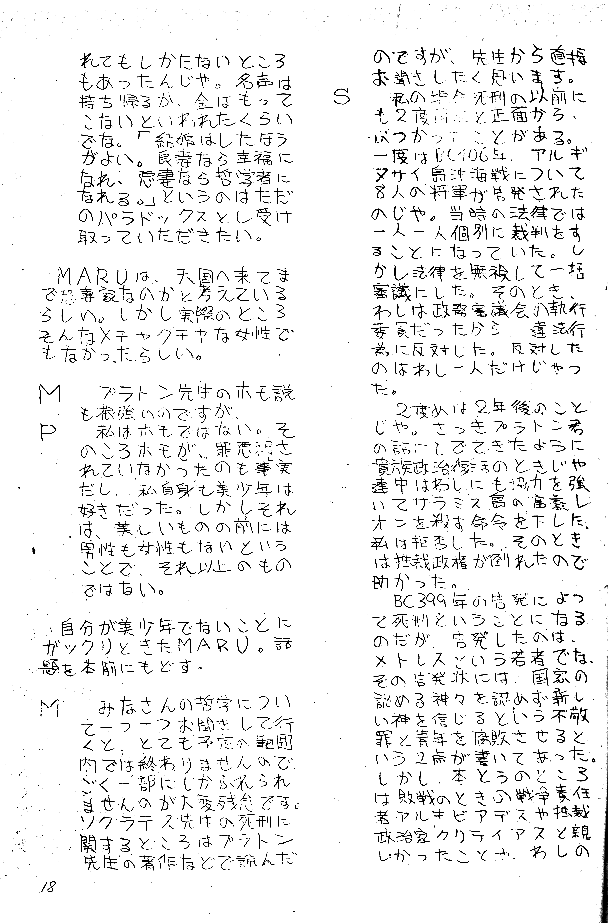 れてもしかたないところ
もあったんじゃ。名声は
持ち帰るが、金はもって
こないといわれたくらい
でな。「結婚はしたほう
がよい。良妻なら幸福に
なれ、悪妻なら哲学者に
なれる。」というのはただ
のパラドックスとし受け
取っていただきたい。
MARUは、天国へ来てま
で恐妻家なのかと考えている
らしい。しかし実際のところ
そんなメチャクチャな女性で
もなかったらしい。
M プラトン先生のホモ説
も根強いのですが、
P 私はホモではない。そ
のころホモが、罪悪視さ
れていなかったのも事実
だし、私自身も美少年は
好きだった。しかしそれ
は、美しいものの前には
男性も女性もないという
ことで、それ以上のもの
ではない。
自分が美少年でないことに
ガックリときたMARU。話
題を本筋にもどす。
M みなさんの哲学につい
て一つ一つお聞きして行
くと、とても予定の範囲
内では終わりませんので
ごく一部にしかふれられ
ませんのが大変残念です。
ソクラテス先生の死刑に
関するところはプラトン
先生の著作などで読んだ
のですが、先生から直接
お聞きしたく思います。
S 私の 死刑の以前に
も2度 と正面から、
ぶつかったことがある。
一度はBC406年、アルギ
ヌサイ島沖海戦について
8人の将軍が告発された
のじゃ。当時の法律では
一人一人個別に裁判をす
ることになっていた。し
かし法律を無視して一括
審議にした。そのとき、
わしは政務審議会の執行
委員だったから 違法行
為に反対した。反対した
のはわし一人だけじゃっ
た。
2度めは2年後のこと
じゃ。さっきプラトン君
の話にもでてきたように
貴族政治復活のときじゃ
連中はわしにも協力を強
いてサラミス島の富豪レ
オンを殺す命令を下した、
私は拒否した。そのとき
は独裁政権が倒れたので
助かった。
BC399年の告発によっ
て死刑ということになる
のだが、告発したのは、
メトレスという若者でな、
その告発状には、国家の
認める神々を認めず新し
い神を信じるという不敬
罪と青年を腐敗させると
いう2点が書いてあった。
しかし、本とうのところ
は敗戦のときの戦争責任
者アルキビアデスや独裁
政治家クリティアスと親
しかったことが、わしの
18